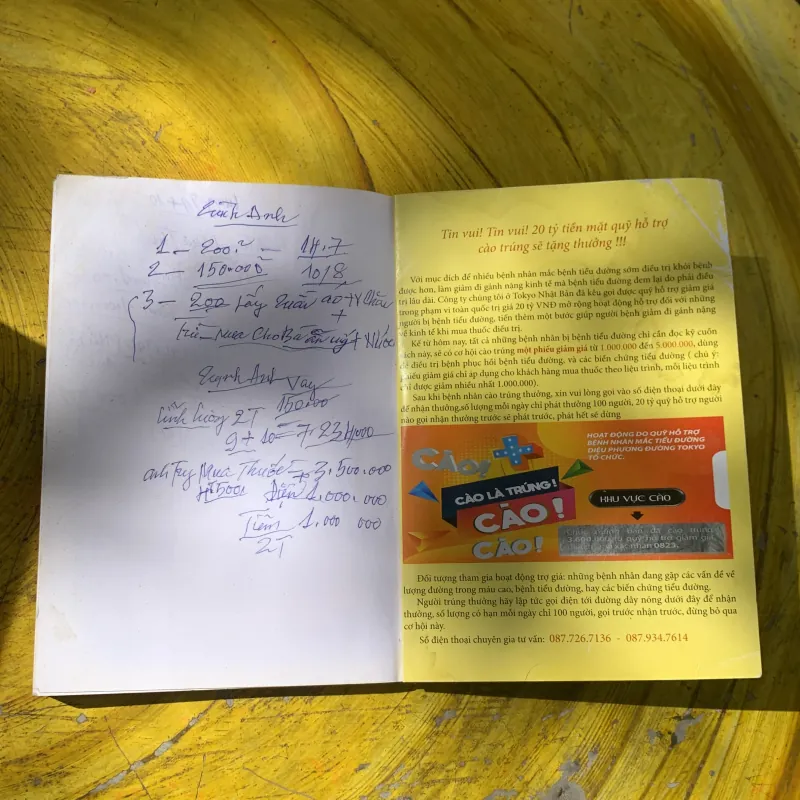 1 - 200.
14.7
2 - 150.000
10/8
3 - 200 Lấy
+
150.000
2T
9 + 10 = 7.234.000
Mua Thuốc 3.500.000
1500 Điện 1.000.000
Tiền 1.000 000
2T
Tin vui! Tin vui! 20 tỷ tiền mặt quỹ hỗ trợ
cào trúng sẽ tặng thưởng !!!
Với mục đích để nhiều bệnh nhân mắc bệnh tiểu đường sớm điều trị khỏi bệnh
được hơn, làm giảm đi gánh nặng kinh tế mà bệnh tiểu đường đem lại do phải điều
trị lâu dài. Công ty chúng tôi ở Tokyo Nhật Bản đã kêu gọi được quỹ hỗ trợ giảm giá
trong phạm vi toàn quốc trị giá 20 tỷ VNĐ mở rộng hoạt động hỗ trợ đối với những
người bị bệnh tiểu đường, tiến thêm một bước giúp người bệnh giảm đi gánh nặng
về kinh tế khi mua thuốc điều trị.
Kể từ hôm nay, tất cả những bệnh nhân bị bệnh tiểu đường chỉ cần đọc kỹ cuốn
sách này, sẽ có cơ hội cào trúng một phiếu giảm giá từ 1.000.000 đến 5.000.000, dùng
để điều trị bệnh phục hồi bệnh tiểu đường, và các biến chứng tiểu đường ( chú ý:
phiếu giảm giá chỉ áp dụng cho khách hàng mua thuốc theo liệu trình, mỗi liệu trình
chỉ được giảm nhiều nhất 1.000.000).
Sau khi bệnh nhân cào trúng thưởng, xin vui lòng gọi vào số điện thoại dưới đây
để nhận thưởng,số lượng mỗi ngày chỉ phát thưởng 100 người, 20 tỷ quỹ hỗ trợ người
nào gọi nhận thưởng trước sẽ phát trước, phát hết sẽ dừng
CÀO!
CÀO LÀ TRÚNG!
CÀO!
CÀO!
HOẠT ĐỘNG DO QUỸ HỖ TRỢ
BỆNH NHÂN MẮC TIỂU ĐƯỜNG
DIỆU PHƯƠNG ĐƯỜNG TOKYO
TỔ CHỨC.
KHU VỰC CÀO
Đối tượng tham gia hoạt động trợ giá: những bệnh nhân đang gặp các vấn đề về
lượng đường trong máu cao, bệnh tiểu đường, hay các biến chứng tiểu đường.
Người trúng thưởng hãy lập tức gọi điện tới đường dây nóng dưới đây để nhận
thưởng, số lượng có hạn mỗi ngày chỉ 100 người, gọi trước nhận trước, đừng bỏ qua
cơ hội này.
Số điện thoại chuyên gia tư vấn: 087.726.7136 - 087.934.7614